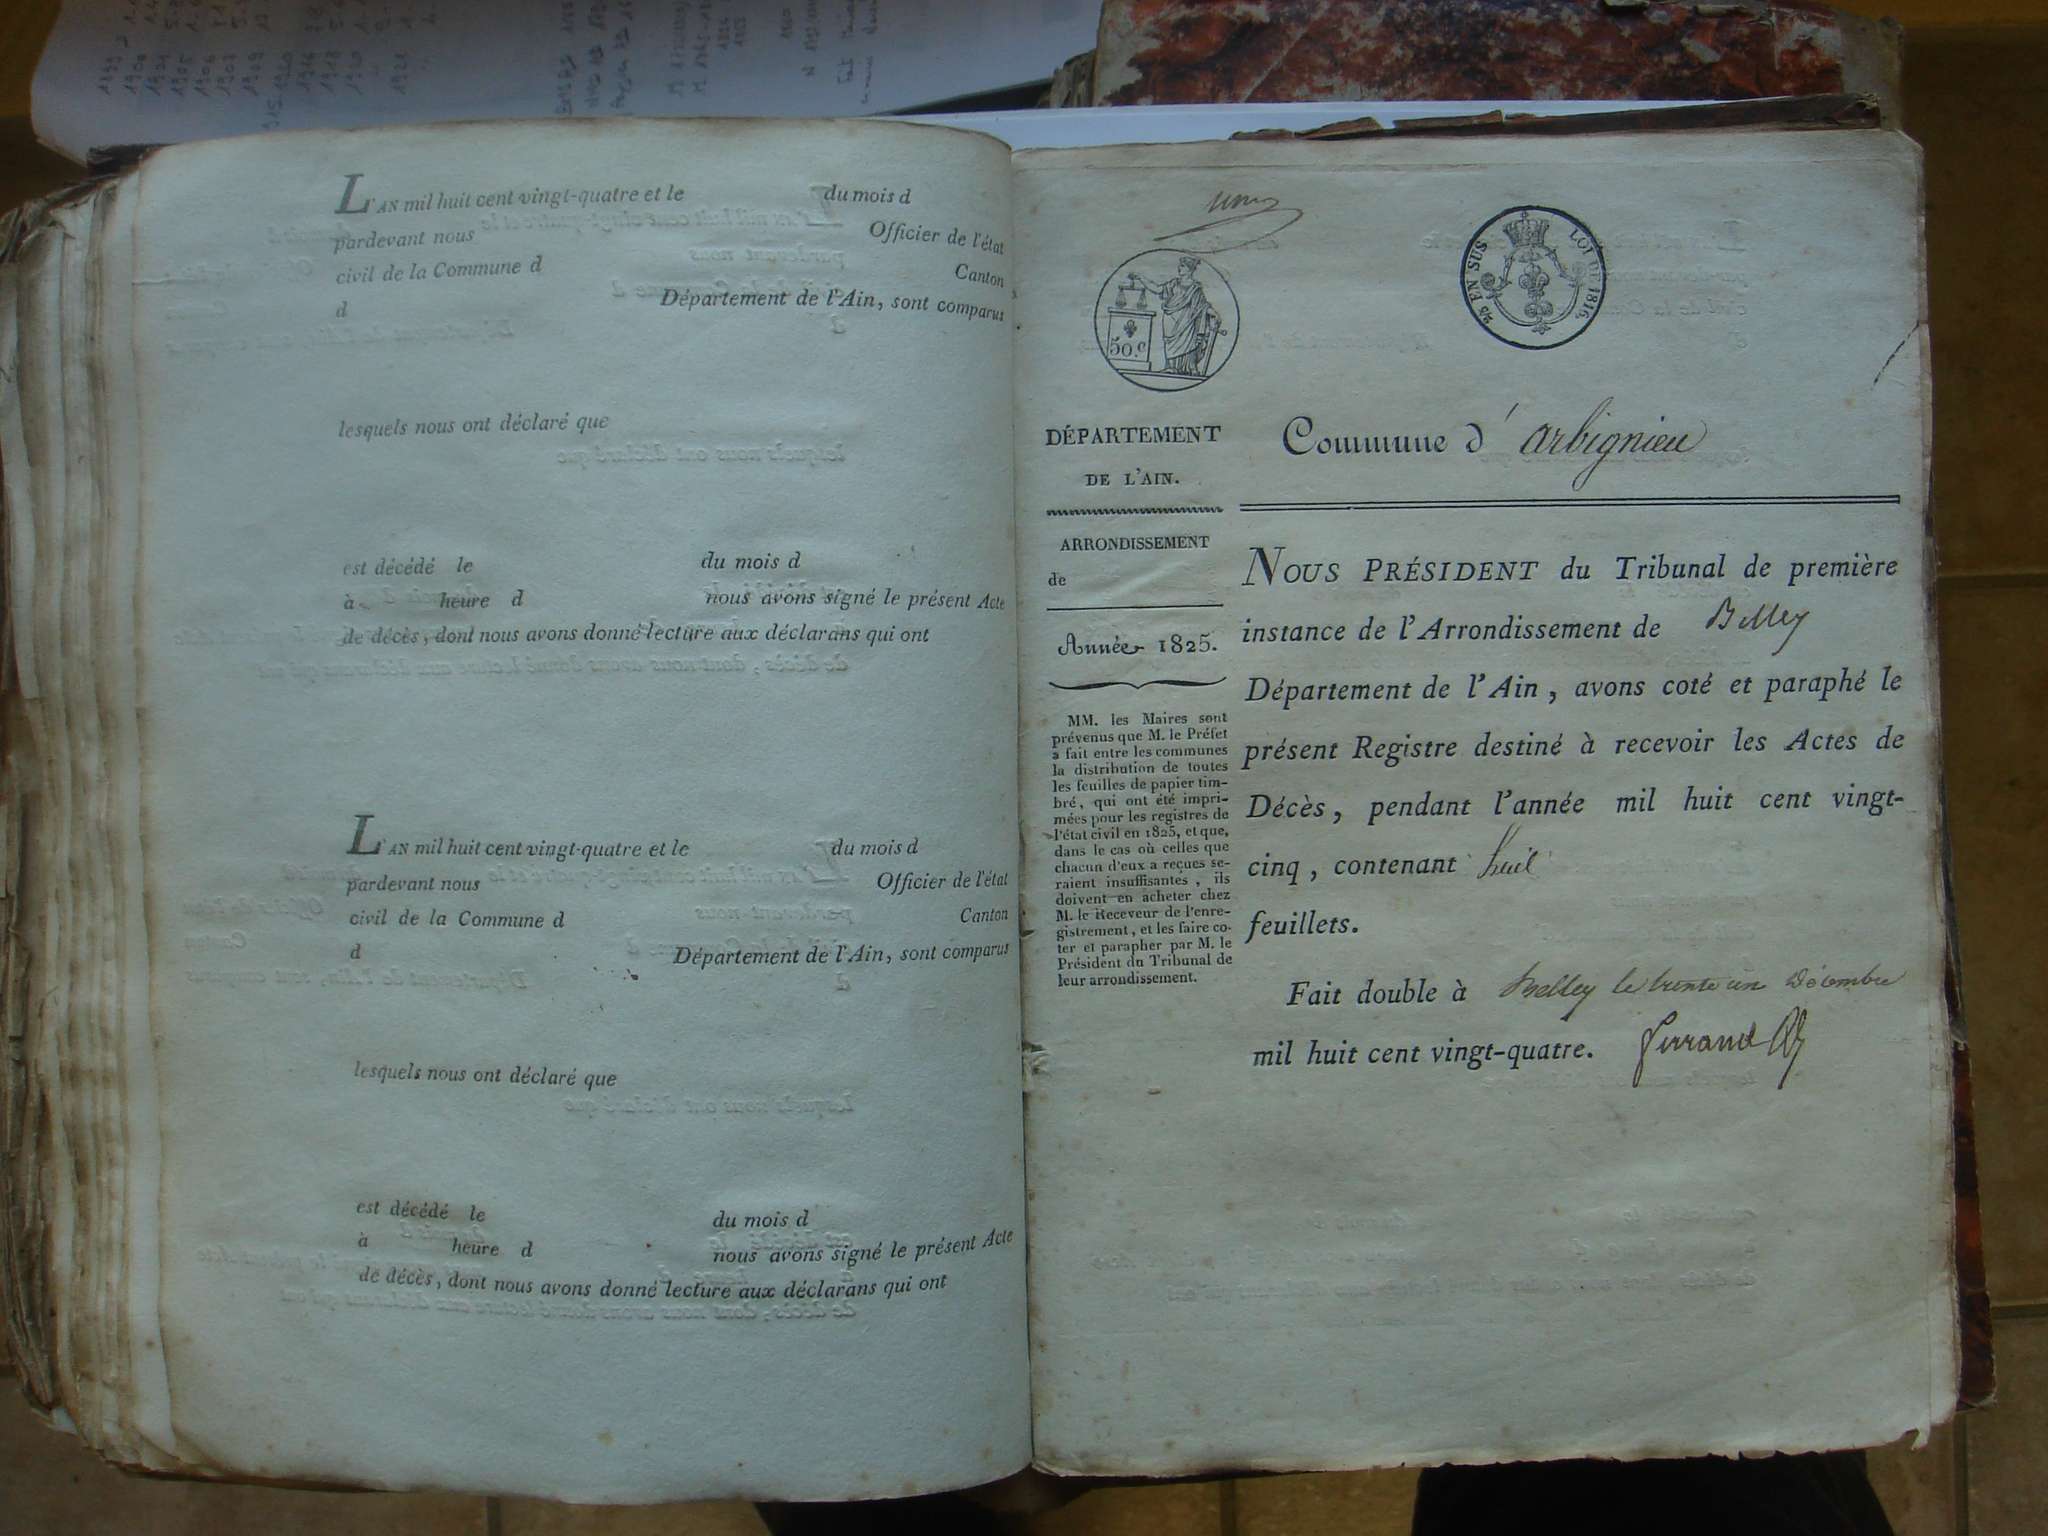 L'AN mil huit cent vingt-quatre et le du mois d
pardevant nous Officier de l'état
civil de la Commune d Canton
d Département de l'Ain, sont comparus
lesquels nous ont déclaré que
est décédé le du mois d
à heure d nous avons signé le présent Acte
de décès, dont nous avons donné lecture aux déclarans qui ont
L'AN mil huit cent vingt-quatre et le du mois d
pardevant nous Officier de l'état
civil de la Commune d Canton
d Département de l'Ain, sont comparus
lesquels nous ont déclaré que
est décédé le du mois d
à heure d nous avons signé le présent Acte
de décès, dont nous avons donné lecture aux déclarans qui ont
50.c
25 EN SUS LOI DE 1816
DÉPARTEMENT
DE L'AIN.
ARRONDISSEMENT
de
Année 1825.
MM. les Maires sont
prévenus que M. le Préfet
a fait entre les communes
la distribution de toutes
les feuilles de papier tim-
bré, qui ont été impri-
mées pour les registres de
l'état civil en 1825, et que,
dans le cas où celles que
chacun d'eux a reçues se-
raient insuffisantes, ils
doivent en acheter chez
M. le Receveur de l'enre-
gistrement, et les faire co-
ter et parapher par M. le
Président du Tribunal de
leur arrondissement.
Commune d'arbignieu
NOUS PRÉSIDENT du Tribunal de première
instance de l'Arrondissement de Belley
Département de l'Ain, avons coté et paraphé le
présent Registre destiné à recevoir les Actes de
Décès, pendant l'année mil huit cent vingt-
cinq, contenant huit
feuillets.
Fait double à Belley le trente un Décembre
mil huit cent vingt-quatre.